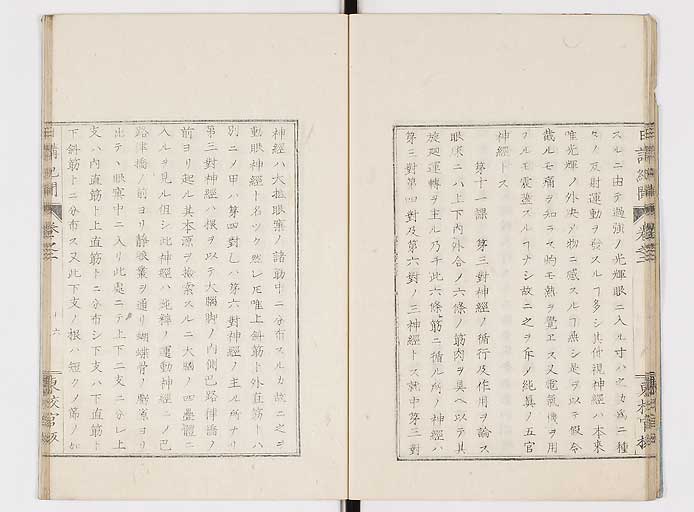 スルニ由テ過強ノ光輝眼ニ入ル寸ハ之カ為ニ種
々ノ反射運動ヲ發スルヿ多シ其他視神經ハ本來
唯光輝ノ外決メ物ニ感スルヿ無シ是ヲ以テ假令
截ルモ痛ヲ知ラス灼モ熱ヲ覺エス又電氣機ヲ用
フルモ震盪スルヿナシ故ニ之ヲ斥メ純眞ノ五官
神經トス
第十一課 第三對神經ノ循行及作用ヲ論ス
眼球ニハ上下內外合ノ六條ノ筋肉ヲ具ヘ以テ其
旋廻運轉ヲ主ル乃チ此六條筋ニ循ル所ノ神經ハ
第三對第四對及第六對ノ三神經トス就中第三對
神經ハ大抵眼窠ノ諸筋中ニ分布スルカ故ニ之ヲ
動眼神經ト名ツク然レ𪜈唯上斜筋ト外直筋トハ
別ニノ甲ハ第四對乙ハ第六對神經ノ主ル所ナリ
第三對神經ハ根ヲ以テ大腦脚ノ內側巴路律橋ノ
前ヨリ起ル其本源ヲ搜索スルニ大腦ノ四疊體ニ
入ルヲ見ル但シ此神經ハ純粹ノ運動神經ニノ巴
路律橋ノ前ヨリ靜脉囊ヲ通リ蝴蝶骨ノ
出テヽ眼窠中ニ入リ此處ニテ上下二支ニ分レ上
支ハ內直筋ト上直筋トニ分布シ下支ハ下直筋ト
下斜筋トニ分布ス又此下支ノ根ハ短ク
日講紀聞 卷之二 十六